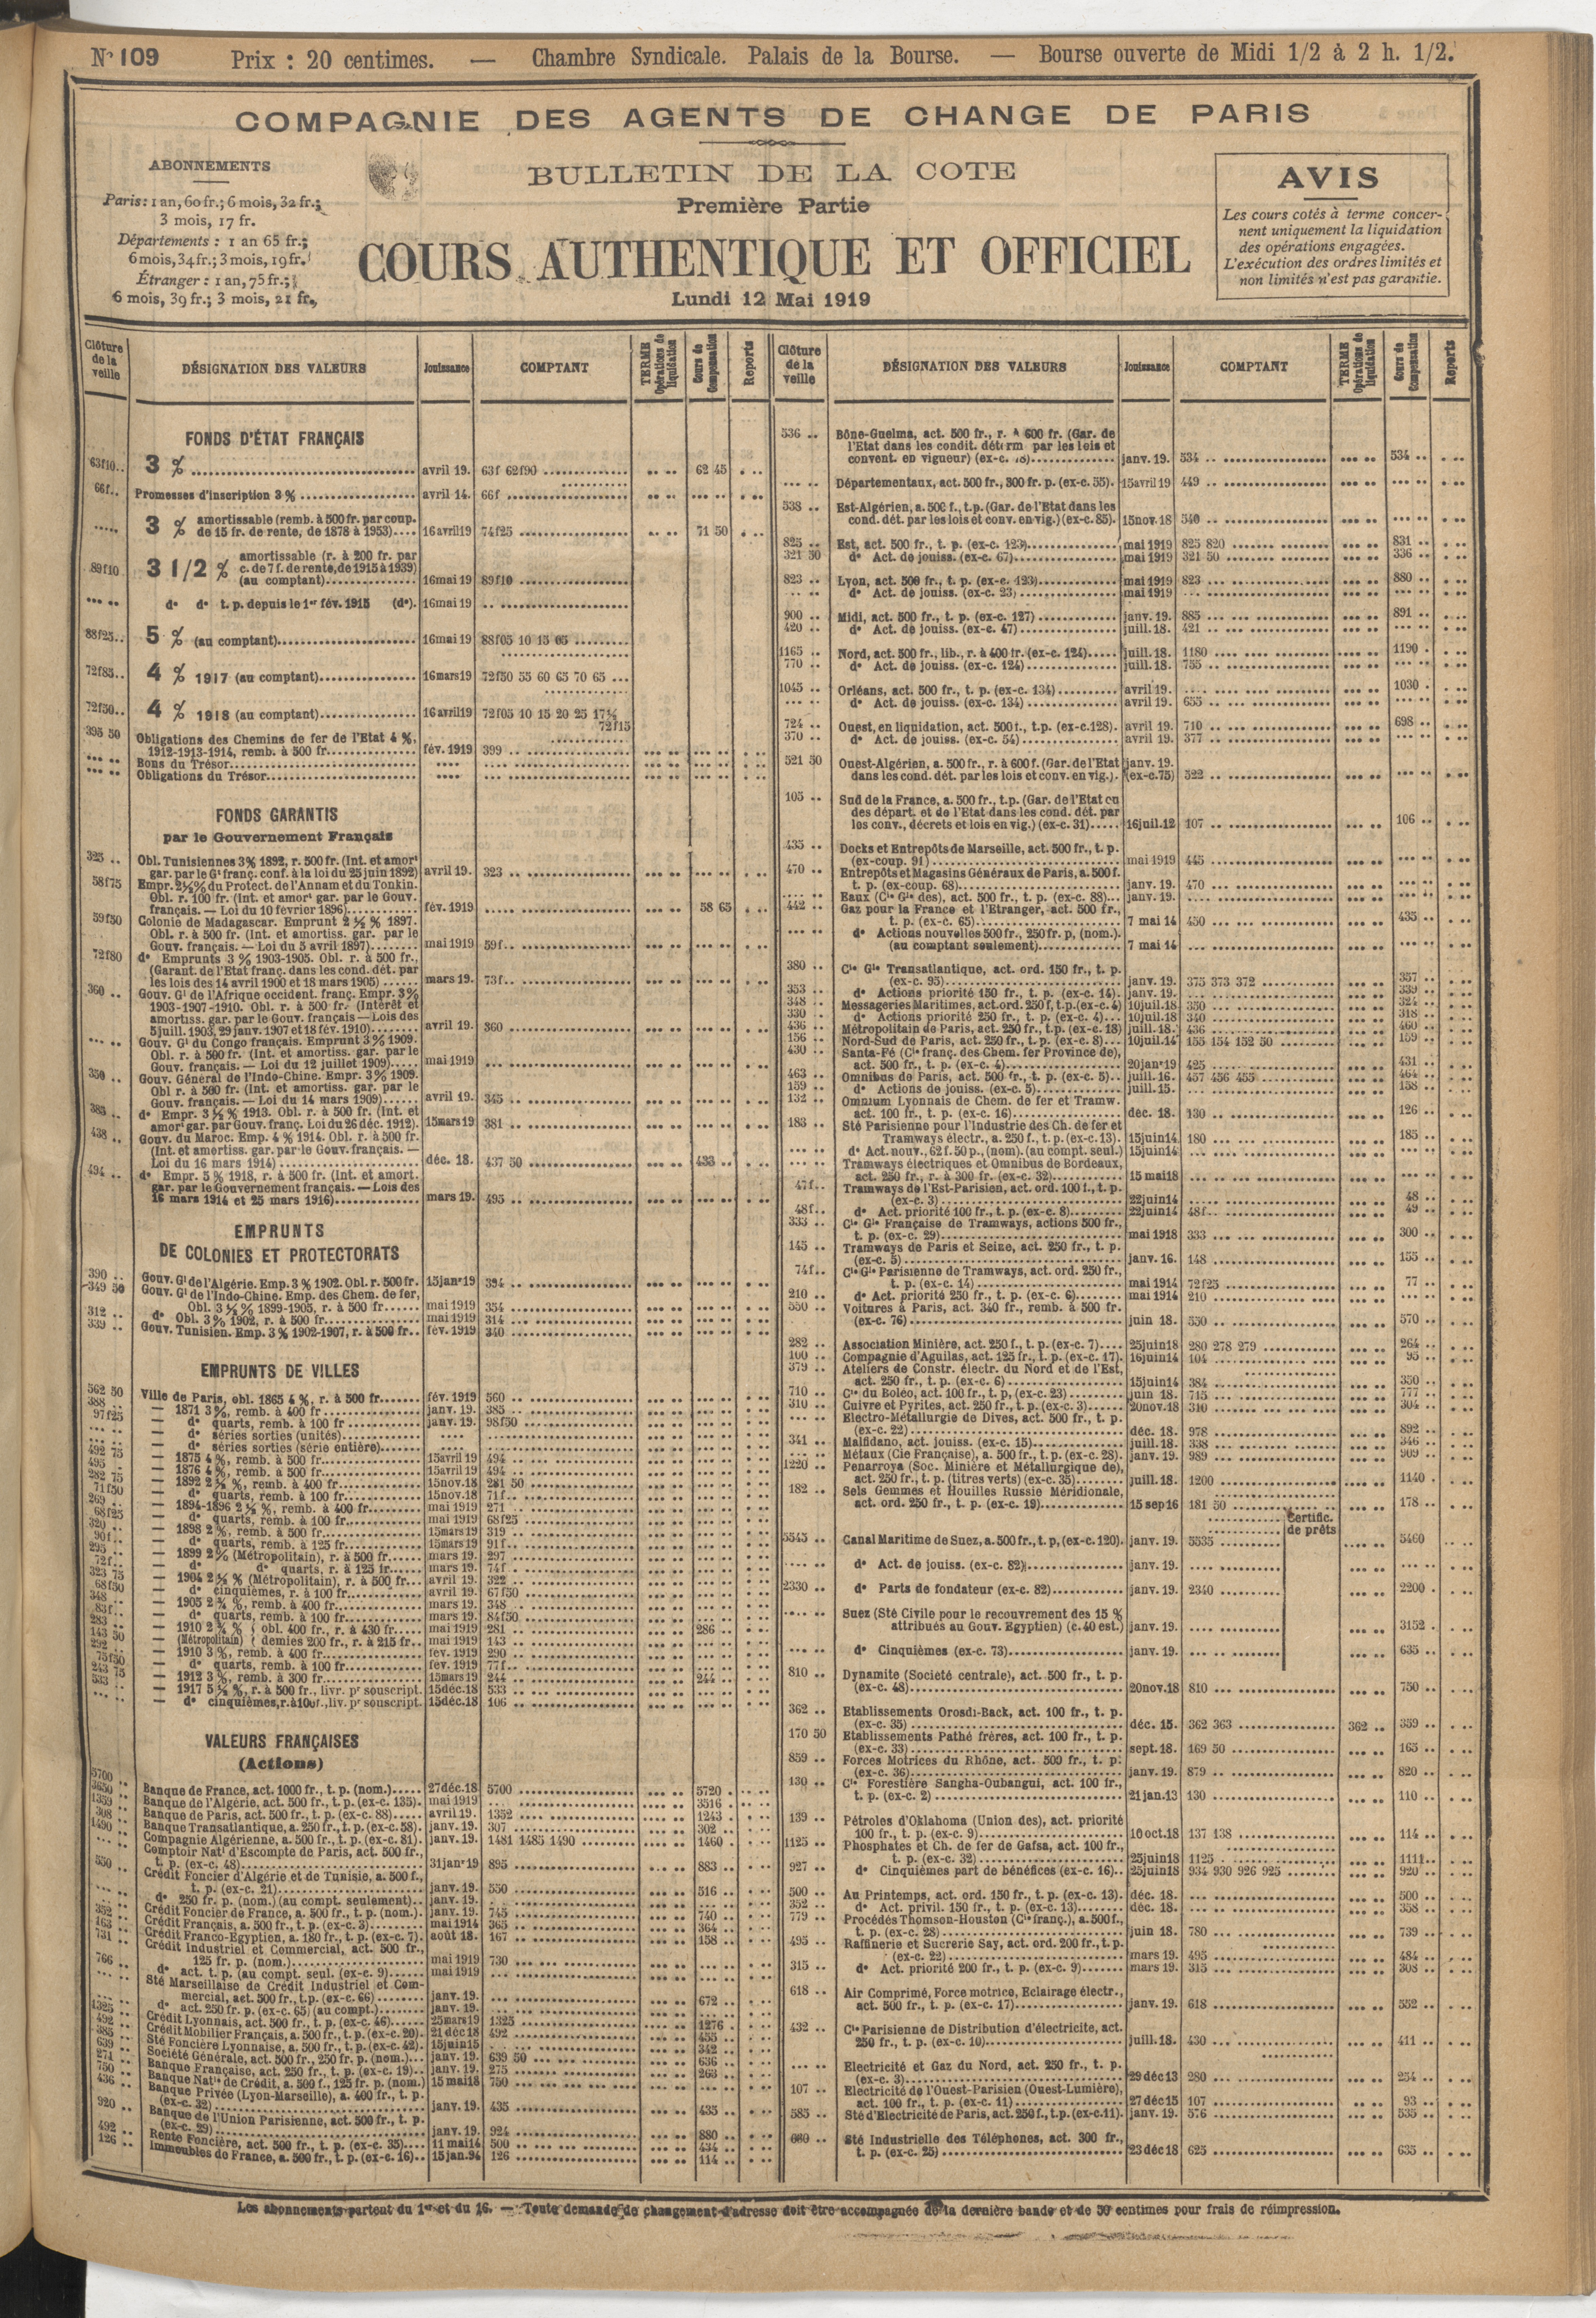 N° 109 Prix : 20 centimes. — Chambre Syndicale. Palais de la Bourse. — Bourse ouverte de Midi 1/2 à 2 h. 1/2.
COMPAGNIE DES AGENTS DE CHANGE DE PARIS
ABONNEMENTS
Paris : 1 an, 60 fr.; 6 mois, 32 fr.;
3 mois, 17 fr.
Départements : 1 an 65 fr.;
6 mois, 34 fr.; 3 mois, 19 fr.
Étranger : 1 an, 75 fr.;
6 mois, 39 fr.; 3 mois, 21 fr.,
BULLETIN DE LA COTE
Première Partie
COURS AUTHENTIQUE ET OFFICIEL
Lundi 12 Mai 1919
AVIS
Les cours cotés à terme concer-
nent uniquement la liquidation
des opérations engagées.
L'exécution des ordres limités et
non limités n'est pas garantie.
Clôture de la veille DÉSIGNATION DES VALEURS Jouissance COMPTANT TERME Opérations de liquidation Cours de Compensation Reports
FONDS D'ÉTAT FRANÇAIS
63f10.. 3 % avril 19. 63f 62f90 62 45
66f.. Promesses d'inscription 3 % avril 14. 66f
3 % amortissable (remb. à 500 fr. par coup.
de 15 fr. de rente, de 1878 à 1953).... 16 avril 19 74f25 71 50
89f10 3 1/2 % amortissable (r. à 200 fr. par
c. de 7 f. de rente, de 1915 à 1939)
(au comptant) 16 mai 19 89f10
d° d° t. p. depuis le 1er fév. 1915 (d°). 16 mai 19
88f25.. 5 % (au comptant) 16 mai 19 88f05 10 15 05
72f85.. 4 % 1917 (au comptant) 16 mars 19 72f50 55 60 65 70 65
72f50.. 4 % 1918 (au comptant) 16 avril 19 72f05 10 15 20 25 17½
72f15
395 50 Obligations des Chemins de fer de l'Etat 4 %,
1912-1913-1914, remb. à 500 fr. fév. 1919 399
Bons du Trésor
Obligations du Trésor
FONDS GARANTIS
par le Gouvernement Français
325 .. Obl. Tunisiennes 3 % 1892, r. 500 fr. (Int. et amort
gar. par le Gt franç. conf. à la loi du 25 juin 1892) avril 19. 323
58f75 Empr. 2½ % du Protect. de l'Annam et du Tonkin.
Obl. r. 100 fr. (Int. et amort gar. par le Gouv.
français. — Loi du 10 février 1896) fév. 1919 58 65
59f50 Colonie de Madagascar. Emprunt 2 ½ % 1897.
Obl. r. à 500 fr. (Int. et amortiss. gar. par le
Gouv. français. — Loi du 5 avril 1897) mai 1919 59f..
72f80 d° Emprunts 3 % 1903-1905. Obl. r. à 500 fr.,
(Garant. de l'Etat franç. dans les cond. dét. par
les lois des 14 avril 1900 et 18 mars 1905) mars 19. 73f..
360 .. Gouv. Gl de l'Afrique occident. franç. Empr. 3 %
1903-1907-1910. Obl. r. à 500 fr. (Intérêt et
amortiss. gar. par le Gouv. français — Lois des
5 juill. 1903, 29 janv. 1907 et 18 fév. 1910) avril 19. 360
Gouv. Gl du Congo français. Emprunt 3 % 1909.
Obl. r. à 500 fr. (Int. et amortiss. gar. par le
Gouv. français. — Loi du 12 juillet 1909) mai 1919
350 .. Gouv. Général de l'Indo-Chine. Empr. 3 % 1909.
Obl r. à 500 fr. (Int. et amortiss. gar. par le
Gouv. français. — Loi du 14 mars 1909) avril 19. 345
385 .. d° Empr. 3 ½ % 1913. Obl. r. à 500 fr. (Int. et
amort gar. par Gouv. franç. Loi du 26 déc. 1912). 15 mars 19 381
438 .. Gouv. du Maroc. Emp. 4 % 1914. Obl. r. à 500 fr.
(Int. et amortiss. gar. par le Gouv. français. —
Loi du 16 mars 1914) déc. 18. 437 50 433
494 .. d° Empr. 5 % 1918, r. à 500 fr. (Int. et amort.
gar. par le Gouvernement français. — Lois des
16 mars 1914 et 25 mars 1916) mars 19. 495
EMPRUNTS
DE COLONIES ET PROTECTORATS
390 .. Gouv. Gl de l'Algérie. Emp. 3 % 1902. Obl. r. 500 fr. 15 janv 19 394
349 50 Gouv. Gl de l'Indo-Chine. Emp. des Chem. de fer,
Obl. 3 ½ % 1899-1905, r. à 500 fr mai 1919 354
312 .. d° Obl. 3 % 1902, r. à 500 fr. mai 1919 314
339 .. Gouv. Tunisien. Emp. 3 % 1902-1907, r. à 500 fr.. fév. 1919 340
EMPRUNTS DE VILLES
562 50 Ville de Paris, obl. 1865 4 %, r. à 500 fr. fév. 1919 560
388 .. — 1871 3 %, remb. à 400 fr janv. 19. 385
97f25 — d° quarts, remb. à 100 fr janv. 19. 98f50
— d° séries sorties (unités)
— d° séries sorties (série entière)
492 75 — 1875 4 %, remb. à 500 fr. 15 avril 19 494
495 .. — 1876 4 %, remb. à 500 fr. 15 avril 19 494
282 75 — 1892 2 ½ %, remb. à 400 fr. 15 nov. 18 281 50
71f50 — d° quarts, remb. à 100 fr. 15 nov. 18 71f..
269 .. — 1894-1896 2 ½ %, remb. à 400 fr. mai 1919 271
68f25 — d° quarts, remb. à 100 fr. mai 1919 68f25
320 .. — 1898 2 %, remb. à 500 fr. 15 mars 19 319
90f.. — d° quarts, remb. à 125 fr. 15 mars 19 91f..
295 .. — 1899 2 % (Métropolitain), r. à 500 fr. mars 19. 297
72f.. — d° d° quarts, r. à 125 fr. mars 19. 74f
323 75 — 1904 2 ½ % (Métropolitain), r. à 500 fr. avril 19. 322
68f50 — d° cinquièmes, r. à 100 fr. avril 19. 67f50
348 .. — 1905 2 ¾ %, remb. à 400 fr. mars 19. 348
83f.. — d° quarts, remb. à 100 fr. mars 19. 84f50
283 .. — 1910 2 ¾ % { obl. 400 fr., r. à 430 fr. mai 1919 281 286
143 50 — (Métropolitain) { demies 200 fr., r. à 215 fr.. mai 1919 143
292 .. — 1910 3 %, remb. à 400 fr. fév. 1919 290
75f50 — d° quarts, remb. à 100 fr. fév. 1919 77f..
243 75 — 1912 3 %, remb. à 300 fr. 15 mars 19 244 244
533 .. — 1917 5 ½ %, r. à 500 fr., livr. pr souscript. 15 déc. 18 533
— d° cinquièmes, r. à 100 f., liv. pr souscript. 15 déc. 18 106
VALEURS FRANÇAISES
(Actions)
5700 .. Banque de France, act. 1000 fr., t. p. (nom.) 27 déc. 18 5700 5720
3650 .. Banque de l'Algérie, act. 500 fr., t. p. (ex-c. 135). mai 1919 3516
1359 .. Banque de Paris, act. 500 fr., t. p. (ex-c. 88) avril 19. 1352 1243
308 .. Banque Transatlantique, a. 250 fr., t. p. (ex-c. 58). janv. 19. 307 302
1490 .. Compagnie Algérienne, a. 500 fr., t. p. (ex-c. 81). janv. 19. 1481 1485 1490 1460
Comptoir Natl d'Escompte de Paris, act. 500 fr.,
t. p. (ex-c. 48) 31 janv 19 895 883
550 .. Crédit Foncier d'Algérie et de Tunisie, a. 500 f.,
t. p. (ex-c. 21) janv. 19. 550 516
d° 250 fr. p. (nom.) (au compt. seulement) janv. 19.
Crédit Foncier de France, a. 500 fr., t. p. (nom.). janv. 19. 745 740
352 .. Crédit Français, a. 500 fr., t. p. (ex-c. 3) mai 1914 365 364
163 .. Crédit Franco-Egyptien, a. 180 fr., t. p. (ex-c. 7). août 18. 167 158
731 .. Crédit Industriel et Commercial, act. 500 fr.,
125 fr. p. (nom.) mai 1919 730
766 .. d° act. t. p. (au compt. seul. (ex-c. 9) mai 1919
Sté Marseillaise de Crédit Industriel et Com-
mercial, act. 500 fr., t.p. (ex-c. 66) janv. 19. 672
d° act. 250 fr. p. (ex-c. 65) (au compt.) janv. 19.
1325 .. Crédit Lyonnais, act. 500 fr., t. p. (ex-c. 46) 25 mars 19 1325 1276
492 .. Crédit Mobilier Français, a. 500 fr., t. p. (ex-c. 20). 21 déc 18 492 455
385 .. Sté Foncière Lyonnaise, a. 500 fr., t. p. (ex-c. 42). 15 juin 15 342
639 .. Société Générale, act. 500 fr., 250 fr. p. (nom.) janv. 19. 639 50 636
271 .. Banque Française, act. 250 fr., t. p. (ex-c. 19) janv. 19. 275 263
750 .. Banque Natle de Crédit, a. 500 f., 125 fr. p. (nom.) 15 mai 18 750
436 .. Banque Privée (Lyon-Marseille), a. 400 fr., t. p.
(ex-c. 32) janv. 19. 435 435
920 .. Banque de l'Union Parisienne, act. 500 fr., t. p.
(ex-c. 29) janv. 19. 924 880
492 .. Rente Foncière, act. 500 fr., t. p. (ex-c. 35) 11 mai 14 500 434
126 .. Immeubles de France, a. 500 fr., t. p. (ex-c. 16) 15 jan. 94 126 114
Clôture de la veille DÉSIGNATION DES VALEURS Jouissance COMPTANT TERME Opérations de liquidation Cours de Compensation Reports
536 .. Bône-Guelma, act. 500 fr., r. à 600 fr. (Gar. de
l'Etat dans les condit. déterm par les lois et
convent. en vigueur) (ex-c. janv. 19. 534 534
Départementaux, act. 500 fr., 300 fr. p. (ex-c. 55). 15 avril 19 449
538 .. Est-Algérien, a. 500 f., t.p. (Gar. de l'Etat dans les
cond. dét. par les lois et conv. en vig.) (ex-c. 85). 15 nov. 18 540
825 .. Est, act. 500 fr., t. p. (ex-c. 123) mai 1919 825 820 831
321 50 d° Act. de jouiss. (ex-c. 67) mai 1919 321 50 336
823 .. Lyon, act. 500 fr., t. p. (ex-c. 123) mai 1919 823 880
d° Act. de jouiss. (ex-c. 23) mai 1919
900 .. Midi, act. 500 fr., t. p. (ex-c. 127) janv. 19. 885 891
420 .. d° Act. de jouiss. (ex-c. 47) juill. 18. 421
1165 .. Nord, act. 500 fr., lib., r. à 400 fr. (ex-c. 124) juill. 18. 1180 1190
770 .. d° Act. de jouiss. (ex-c. 124) juill. 18. 755
1045 .. Orléans, act. 500 fr., t. p. (ex-c. 134) avril 19. 1030
d° Act. de jouiss. (ex-c. 134) avril 19. 655
724 .. Ouest, en liquidation, act. 500 f., t.p. (ex-c. 128). avril 19. 710 698
370 .. d° Act. de jouiss. (ex-c. 54) avril 19. 377
521 50 Ouest-Algérien, a. 500 fr., r. à 600 f. (Gar. de l'Etat janv. 19.
dans les cond. dét. par les lois et conv. en vig.). (ex-c. 75) 522
105 .. Sud de la France, a. 500 fr., t.p. (Gar. de l'Etat en
des départ. et de l'Etat dans les cond. dét. par
les conv., décrets et lois en vig.) (ex-c. 31) 16 juil. 12 107 106
435 .. Docks et Entrepôts de Marseille, act. 500 fr., t. p.
(ex-coup. 91) mai 1919 445
470 .. Entrepôts et Magasins Généraux de Paris, a. 500 f.
t. p. (ex-coup. 68) janv. 19. 470
Eaux (Cie Gle des), act. 500 fr., t. p. (ex-c. 88) janv. 19.
442 .. Gaz pour la France et l'Etranger, act. 500 fr.,
t. p. (ex-c. 65) 7 mai 14 450 435
d° Actions nouvelles 500 fr., 250 fr. p. (nom.).
(au comptant seulement) 7 mai 14
380 .. Cie Gle Transatlantique, act. ord. 150 fr., t. p.
(ex-c. 95) janv. 19. 375 373 372 357
353 .. d° Actions priorité 150 fr., t. p. (ex-c. 14). janv. 19. 339
348 .. Messageries Maritimes, act. ord. 250 f. t.p. (ex-c. 4) 10 juil. 18 350 324
330 .. d° Actions priorité 250 fr., t. p. (ex-c. 4) 10 juil. 18 340 318
436 .. Métropolitain de Paris, act. 250 fr., t.p. (ex-c. 18) juill. 18. 436 460
156 .. Nord-Sud de Paris, act. 250 fr., t. p. (ex-c. 8) 10 juil. 14 155 154 152 50 159
430 .. Santa-Fé (Cie franç. des Chem. fer Province de),
act. 500 fr., t. p. (ex-c. 4) 20 janv 19 425 431
463 .. Omnibus de Paris, act. 500 fr., t. p. (ex-c. 5) juill. 16. 457 456 455 464
159 .. d° Actions de jouiss. (ex-c. 5) juill. 15. 158
132 .. Omnium Lyonnais de Chem. de fer et Tramw.
act. 100 fr., t. p. (ex-c. 16) déc. 18. 130 126
183 .. Sté Parisienne pour l'Industrie des Ch. de fer et
Tramways électr., a. 250 f., t. p. (ex-c. 13). 15 juin 14. 180 185
d° Act. nouv., 62 f. 50 p., (nom). (au compt. seul.) 15 juin 14
Tramways électriques et Omnibus de Bordeaux,
act. 250 fr., r. à 300 fr. (ex-c. 32) 15 mai 18
47f.. Tramways de l'Est-Parisien, act. ord. 100 f., t. p.
(ex-c. 3) 22 juin 14 48
48f.. d° Act. priorité 100 fr., t. p. (ex-c. 8) 22 juin 14 48f.. 49
333 .. Cie Gle Française de Tramways, actions 500 fr.,
t. p. (ex-c. 29) mai 1918 333 300
145 .. Tramways de Paris et Seine, act. 250 fr., t. p.
(ex-c. 5) janv. 16. 148 155
74f.. Cie Gle Parisienne de Tramways, act. ord. 250 fr.,
t. p. (ex-c. 14) mai 1914 72f25 77
210 .. d° Act. priorité 250 fr., t. p. (ex-c. 6) mai 1914 210
550 .. Voitures à Paris, act. 340 fr., remb. à 500 fr.
(ex-c. 76) juin 18. 550 570
282 .. Association Minière, act. 250 f., t. p. (ex-c. 7) 25 juin 18 280 278 279 264
100 .. Compagnie d'Aguilas, act. 125 fr., t. p. (ex-c. 17). 16 juin 14 104 95
379 .. Ateliers de Constr. électr. du Nord et de l'Est,
act. 250 fr., t. p. (ex-c. 6) 15 juin 14 384 350
710 .. Cie du Boléo, act. 100 fr., t. p, (ex-c. 23) juin 18. 715 777
310 .. Cuivre et Pyrites, act. 250 fr., t. p. (ex-c. 3) 20 nov. 18 310 304
Electro-Métallurgie de Dives, act. 500 fr., t. p.
(ex-c. 22) déc. 18. 978 892
341 .. Malfidano, act. jouiss. (ex-c. 15) juill. 18. 338 346
Métaux (Cie Française), a. 500 fr., t. p. (ex-c. 28). janv. 19. 989 909
1220 .. Penarroya (Soc. Minière et Métallurgique de),
act. 250 fr., t. p. (titres verts) (ex-c. 35) juill. 18. 1200 1140
182 .. Sels Gemmes et Houilles Russie Méridionale,
act. ord. 250 fr., t. p. (ex-c. 19) 15 sep 16 181 50 178
Certific.
de prêts
5545 .. Canal Maritime de Suez, a. 500 fr., t. p, (ex-c. 120). janv. 19. 5535 5460
d° Act. de jouiss. (ex-c. 82) janv. 19.
2330 .. d° Parts de fondateur (ex-c. 82) janv. 19. 2340 2200
Suez (Sté Civile pour le recouvrement des 15 %
attribués au Gouv. Egyptien) (c. 40 est.) janv. 19. 3152
d° Cinquièmes (ex-c. 73) janv. 19. 635
810 .. Dynamite (Société centrale), act. 500 fr., t. p.
(ex-c. 48) 20 nov. 18 810 750
362 .. Etablissements Orosdi-Back, act. 100 fr., t. p.
(ex-c. 35) déc. 15. 362 363 362 359
170 50 Etablissements Pathé frères, act. 100 fr., t. p.
(ex-c. 33) sept. 18. 169 50 165
859 .. Forces Motrices du Rhône, act. 500 fr., t. p.
(ex-c. 36) janv. 19. 879 820
130 .. Cie Forestière Sangha-Oubangui, act. 100 fr.,
t. p. (ex-c. 2) 21 jan. 13 130 110
139 .. Pétroles d'Oklahoma (Union des), act. priorité
100 fr., t. p. (ex-c. 9) 16 oct. 18 137 138 114
1125 .. Phosphates et Ch. de fer de Gafsa, act. 100 fr.,
t. p. (ex-c. 32) 25 juin 18 1125 1111
927 .. d° Cinquièmes part de bénéfices (ex-c. 16) 25 juin 18 934 930 926 925 920
500 .. Au Printemps, act. ord. 150 fr., t. p. (ex-c. 13). déc. 18. 500
352 .. d° Act. privil. 150 fr., t. p. (ex-c. 13) déc. 18. 358
779 .. Procédés Thomson-Houston (Cie franç.), a. 500 f.,
t. p. (ex-c. 28) juin 18. 780 739
495 .. Raffinerie et Sucrerie Say, act. ord. 200 fr., t. p.
(ex-c. 22) mars 19. 495 484
315 .. d° Act. priorité 200 fr., t. p. (ex-c. 9) mars 19. 315 308
618 .. Air Comprimé, Force motrice, Eclairage électr.,
act. 500 fr., t. p. (ex-c. 17) janv. 19. 618 552
432 .. Cie Parisienne de Distribution d'électricite, act.
250 fr., t. p. (ex-c. 10) juill. 18. 430 411
Electricité et Gaz du Nord, act. 250 fr., t. p.
(ex-c. 3) 29 déc 13 280 254
107 .. Electricité de l'Ouest-Parisien (Ouest-Lumière),
act. 100 fr., t. p. (ex-c. 11) 27 déc 15 107 93
585 .. Sté d'Electricité de Paris, act. 250 f., t.p. (ex-c. 11). janv. 19. 576 535
660 .. Sté Industrielle des Téléphones, act. 300 fr.,
t. p. (ex-c. 25) 23 déc 18 625 635
Les abonnements partent du 1er et du 16. — Toute demande de changement d'adresse doit être accompagnée de la dernière bande et de 50 centimes pour frais de réimpression.